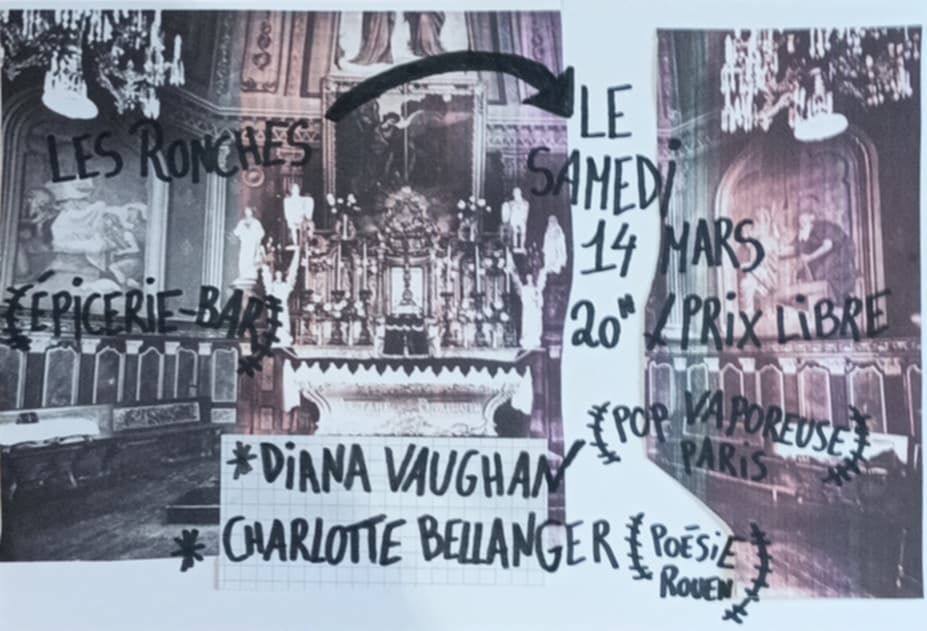 LES RONCHES
{ÉPICERIE-BAR}
LE
SAMEDI
14 MARS
20H / PRIX LIBRE
* DIANA VAUGHAN / {POP VAPOREUSE
PARIS}
* CHARLOTTE BELLANGER {POÉSIE
ROUEN}